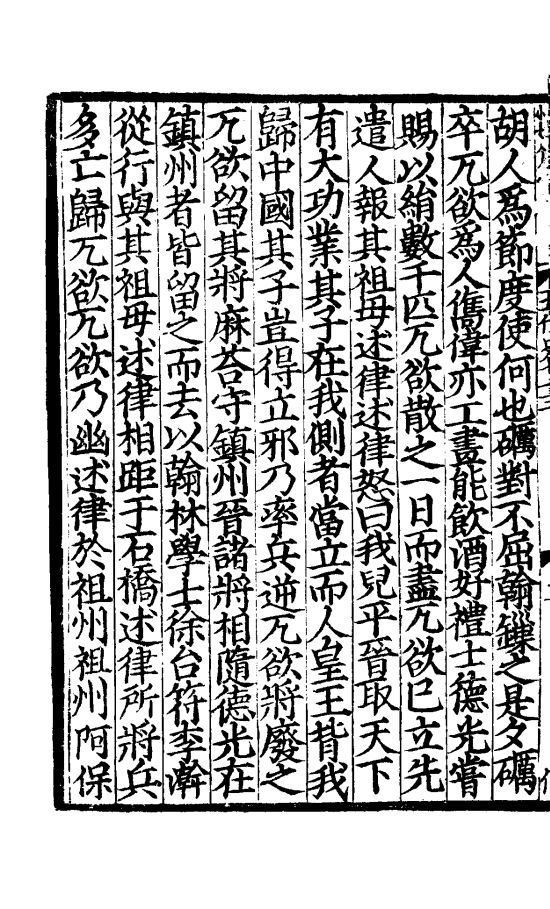 胡人爲節度使何也礪對不屈翰鏁之是夕礪
卒兀欲爲人儁偉亦工畫能飲酒好禮士德光嘗
賜以絹數千匹兀欲散之一日而盡兀欲已立先
遣人報其祖母述律述律怒曰我兒平晉取天下
有大功業其子在我側者當立而人皇王背我
歸中國其子豈得立邪乃率兵逆兀欲將廢之
兀欲留其將麻荅守鎮州晉諸將相隨德光在
鎮州者皆留之而去以翰林學士徐台符李澣
從行與其祖母述律相距于石橋述律所將兵
多亡歸兀欲兀欲乃幽述律於祖州祖州阿保